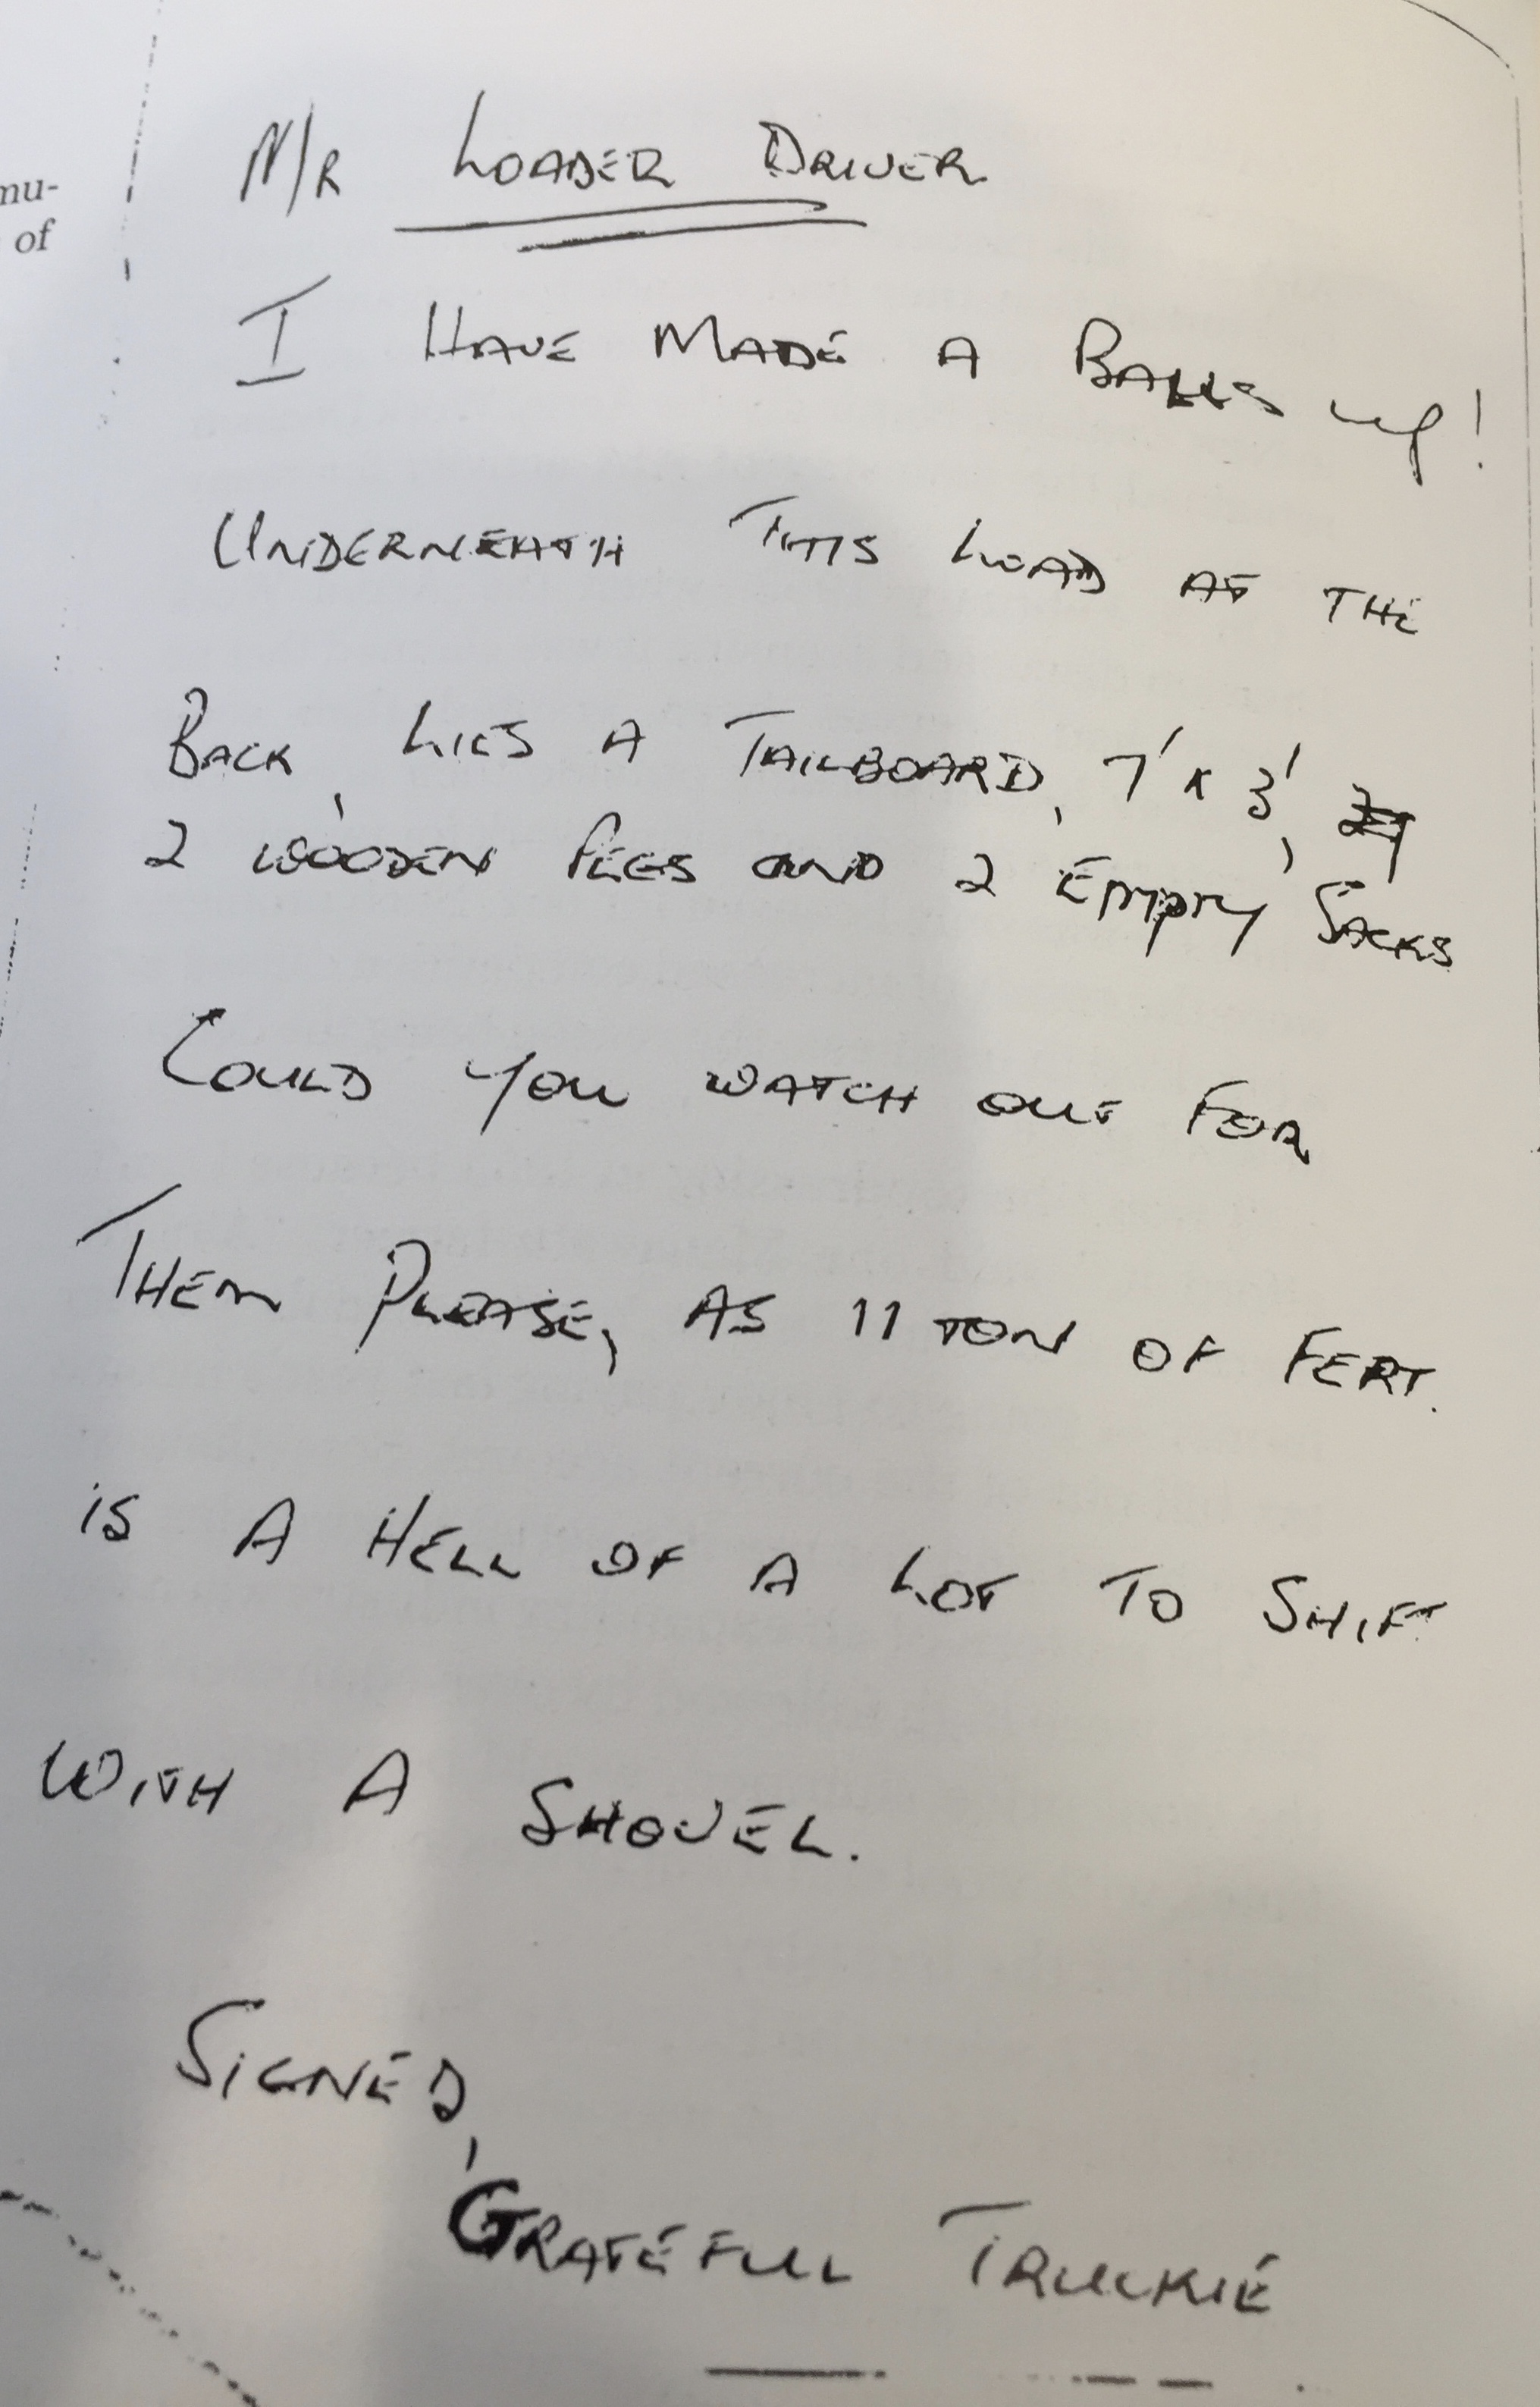 mu-
of
M/R LOADER DRIVER
I HAVE MADE A BALLS up!
UNDERNEATH THIS LOAD AT THE
BACK, LIES A TAILBOARD, 7' x 3',
2 WOODEN PEGS AND 2 EMPTY SACKS
COULD YOU WATCH OUT FOR
THEM PLEASE, AS 11 TON OF FERT.
IS A HELL OF A LOT TO SHIFT
WITH A SHOVEL.
SIGNED,
GRATEFUL TRUCKIE